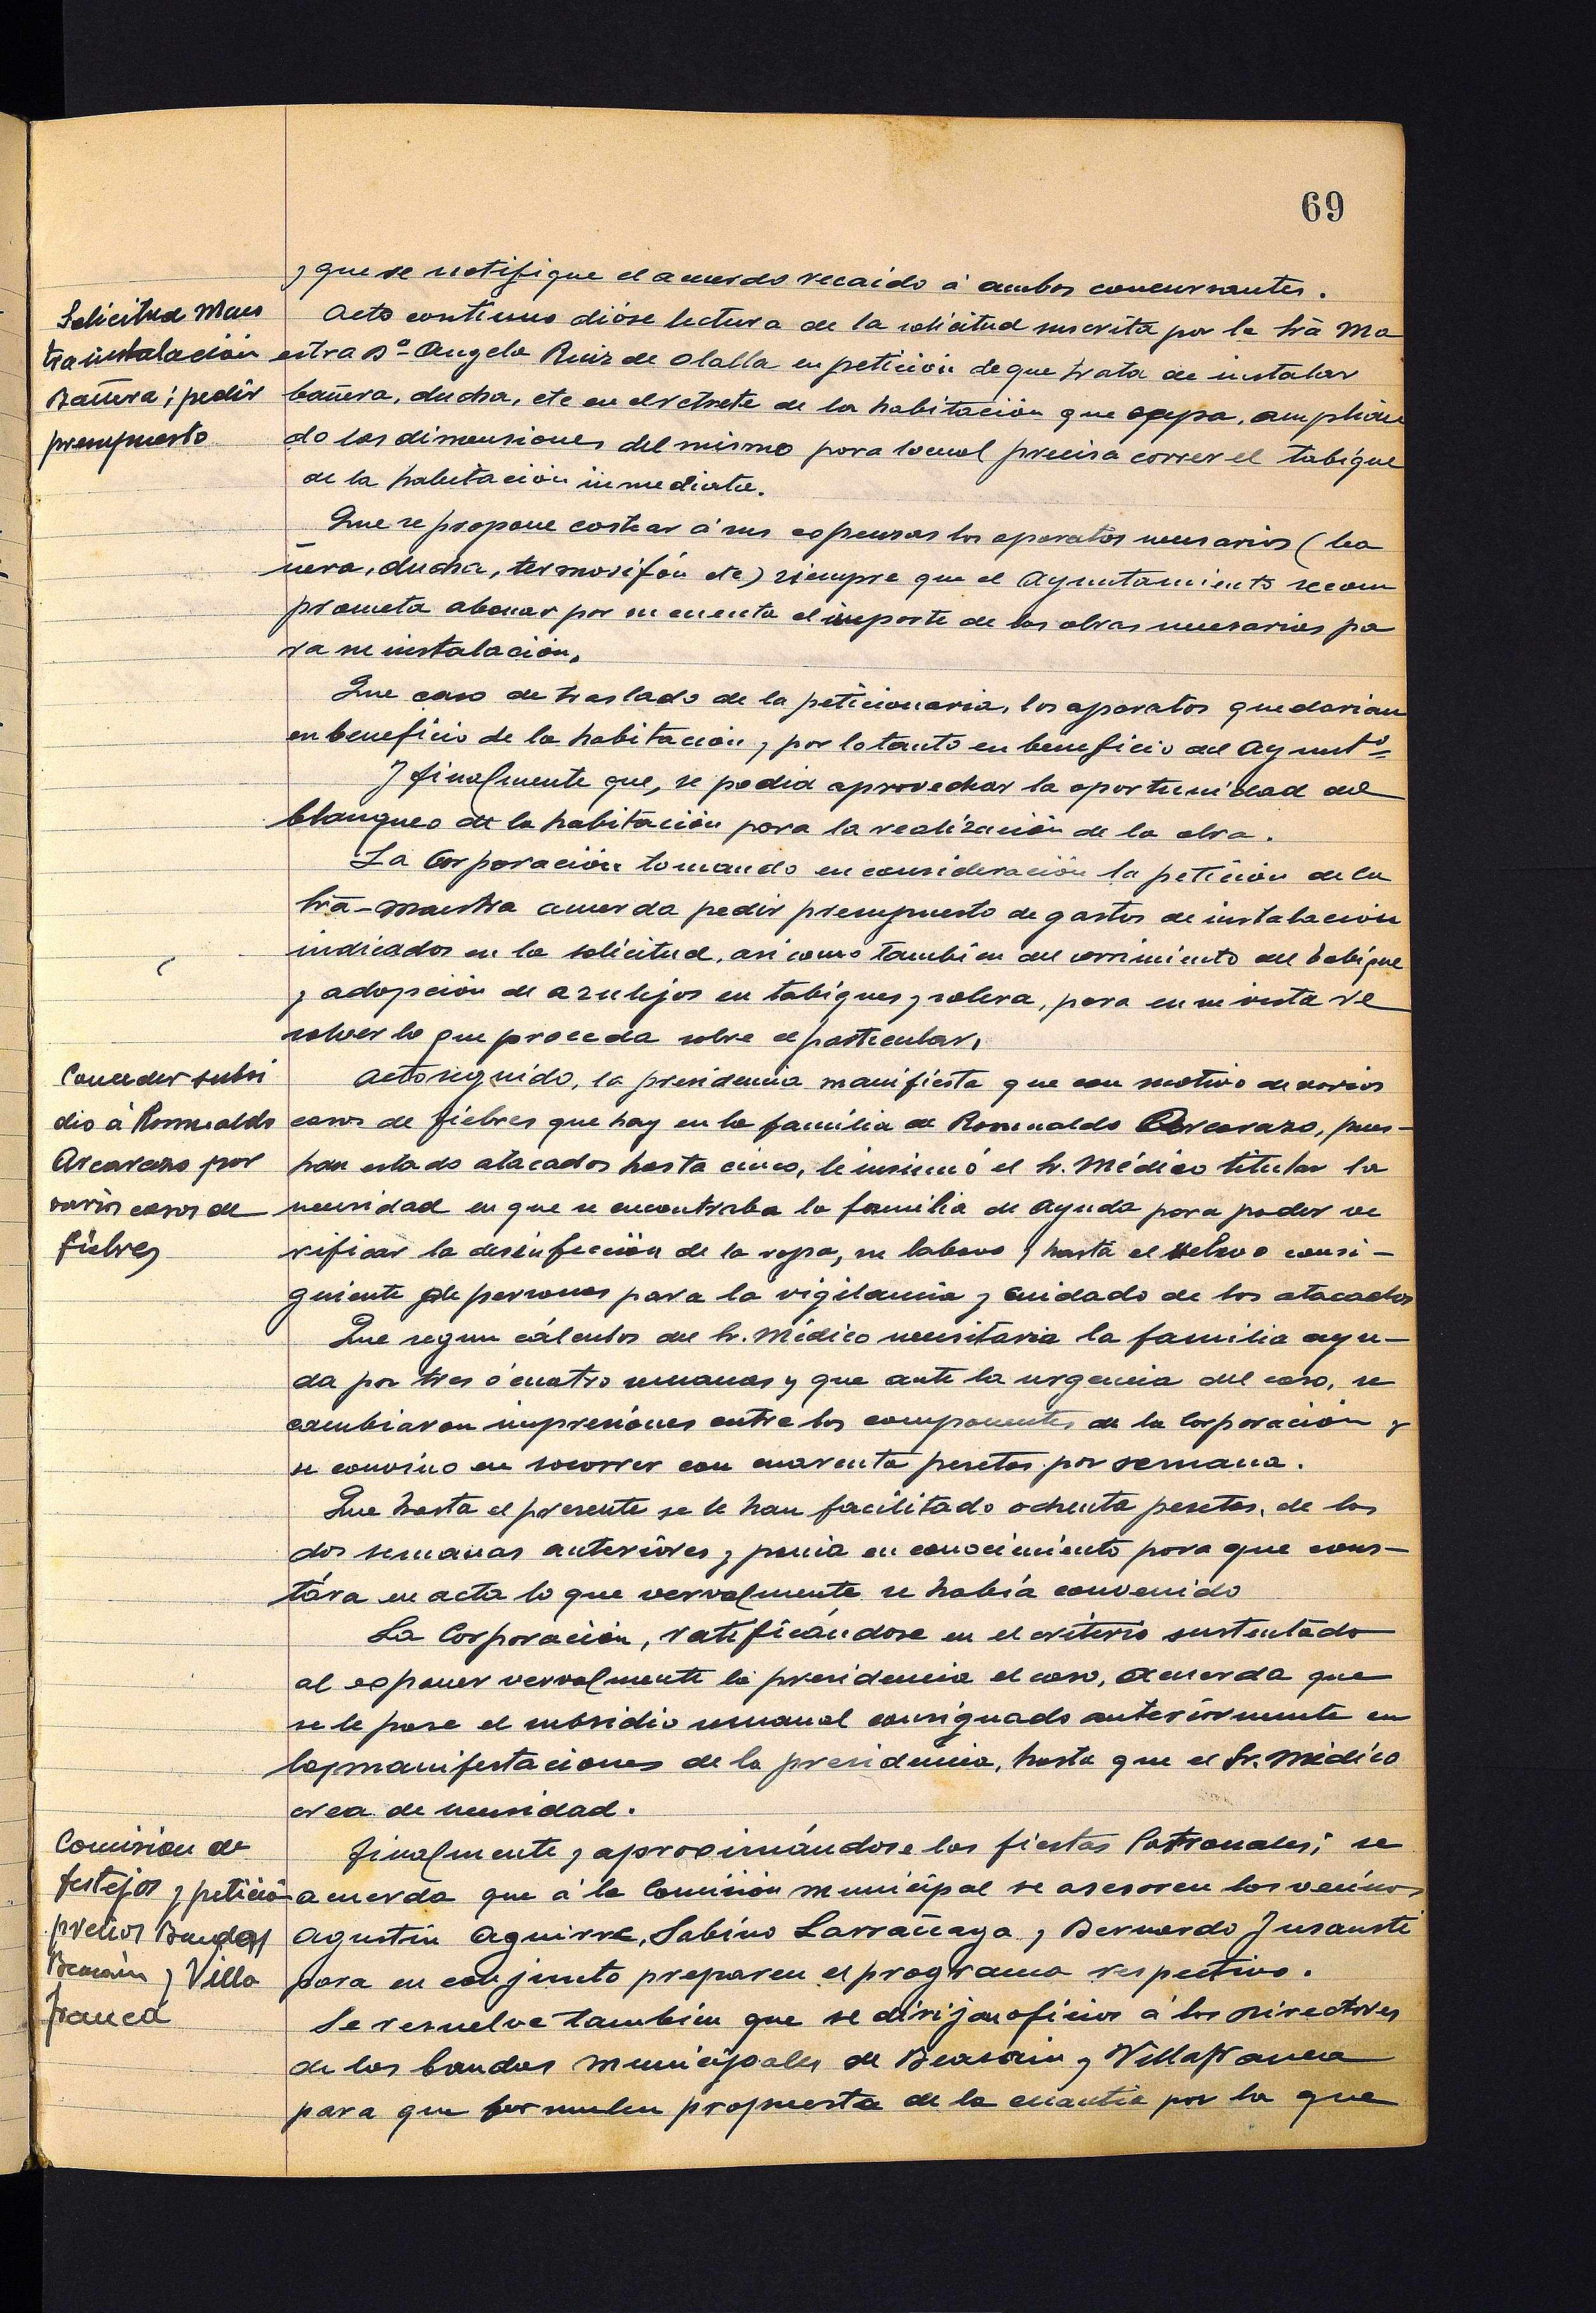 69
y que se notifique el acuerdo recaido á ambos concursantes.
Solicitud Maes
tra instalación
Bañera; pedir
presupuesto
Acto continuo dióse lectura de la solicitud suscrita por la Srā Ma
estra Dª Angela Ruiz de Olalla en petición de que trata de instalar
bañera, ducha, etc en el retrete de la habitación que ocupa, amplian
do las dimensiones del mismo para lo cual precisa correr el tabique
de la habitación inmediata.
Que se propone costear á sus expensas los aparatos necesarios (ba
ñera, ducha, termosifón etc) siempre que el Ayuntamiento se com
prometa abonar por su cuenta el importe de las obras necesarias pa
ra su instalación.
Que caso de traslado de la peticionaria, los aparatos quedarian
en beneficio de la habitación y por lo tanto en beneficio del Ayuntº=
Y finalmente que, se podia aprovechar la oportunidad del
blanqueo de la habitación para la realización de la obra.
La Corporación tomando en consideración la petición de la
Srā-Maestra acuerda pedir presupuesto de gastos de instalación
indicados en la solicitud, asi como tambien del corrimiento del tabique
y adopción de azulejos en tabiques y solera, para en su vista re
solver lo que proceda sobre el particular.
Conceder subsi
dio á Romualdo
Arcarazo por
varios casos de
fiebres
Acto seguido, la presidencia manifiesta que con motivo de varios
casos de fiebres que hay en la familia de Romualdo Arcarazo, pues-
han estado atacados hasta cinco, le insinuó el Sr. Médico titular la
necesidad en que se encontraba la familia de Ayuda para poder ve
rificar la desinfección de la ropa, su labeo y hasta el relevo consi-
guiente de personas para la vigilancia y cuidado de los atacados
Que segun cálculos del Sr. Médico necesitaria la familia ayu-
da por tres ó cuatro semanas y que ante la urgencia del caso, se
cambiaron impresiones entre los componentes de la Corporación y
se convino en socorrer con cuarenta pesetas por semana.
Que hasta el presente se le han facilitado ochenta pesetas, de las
dos semanas anteriores y ponia en conocimiento para que cons-
tára en acta lo que vervalmente se había convenido
La Corporación, ratificándose en el criterio sustentado
al exponer vervalmente la presidencia el caso, acuerda que
se le pase el subsidio semanal consignado anteriormente en
las manifestaciones de la presidencia, hasta que el Sr. Médico
crea de necesidad.
Comision de
festejos y petición
precios Bandas
Beasain y Villa
franca
Finalmente y aproximándose las fiestas Patronales; se
acuerda que á la Comisión municipal se asesoren los vecinos
Agustin Aguirre, Sabino Larrañaga y Bernardo Jusausti
para en conjunto preparen el programa respectivo.
Se resuelve tambien que se dirijan oficios á los Directores
de las bandas municipales de Beasain y Villafranca
para que formulen propuesta de la cuantia por la que